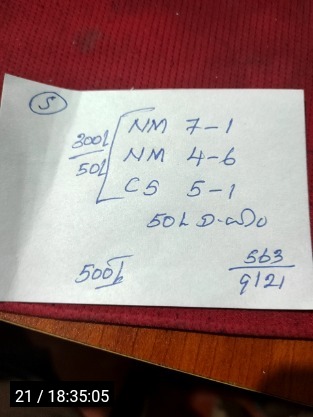 S
NM 7-1
300L NM 4-6
50L CS 5-1
50L
500L
563
9121
21 / 18:35:05